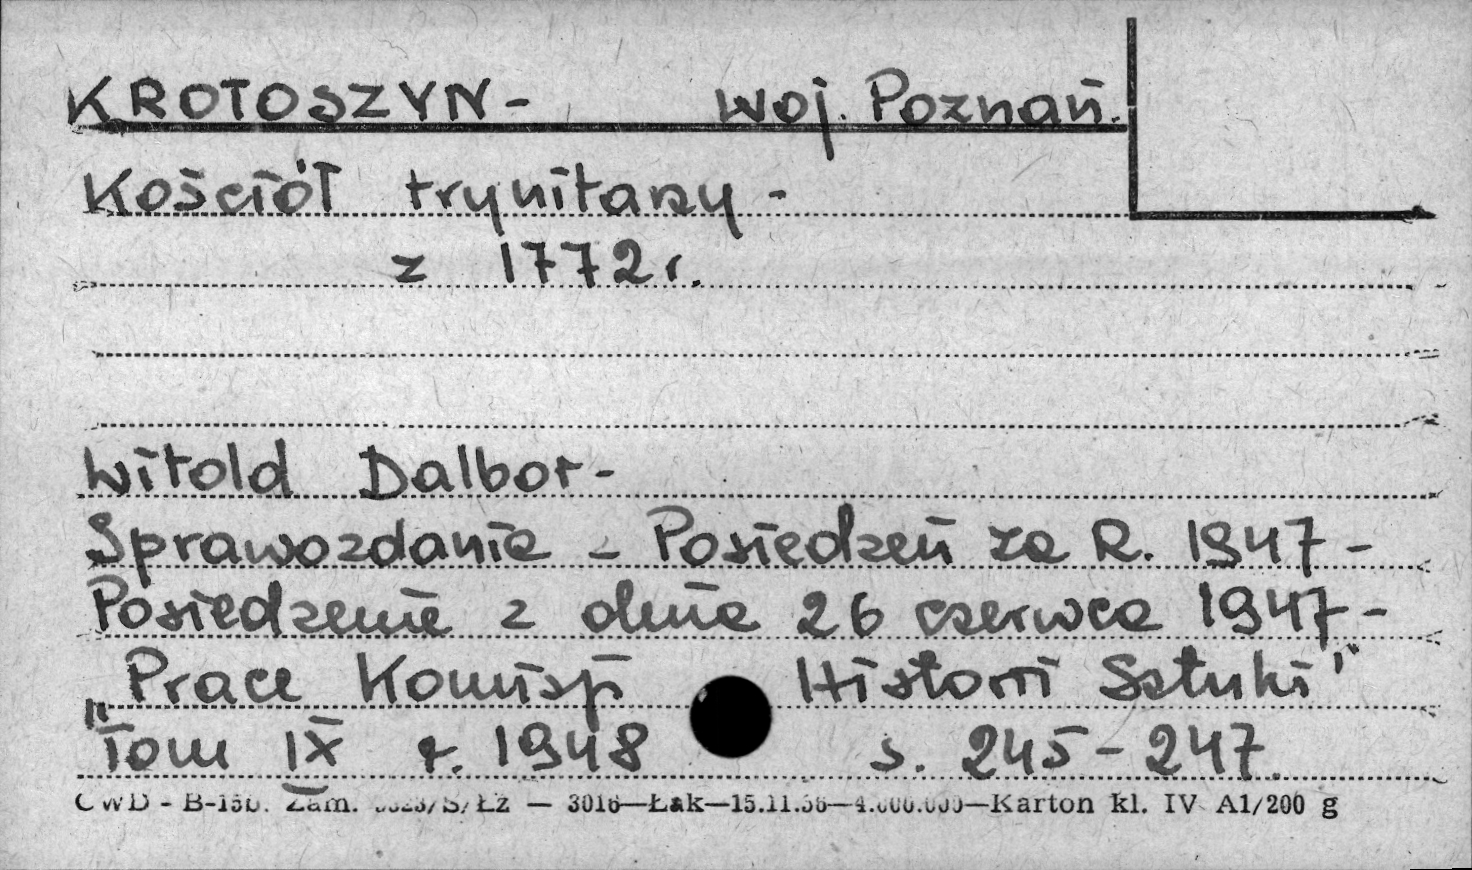 KROTOSZYN - woj. Poznań.
Kościół trynitarzy -
z 1772 r.
Witold Dalbor -
Sprawozdanie - Posiedzeń za R. 1947 -
Posiedzenie z dnia 26 czerwca 1947 -
„Prace Komisji Historii Sztuki"
Tom IX r. 1948 s. 245-247.
CWD - B-15b. Zam. Łz — 3016—Łak—15.11.56—4.000.000—Karton kl. IV A1/200 g